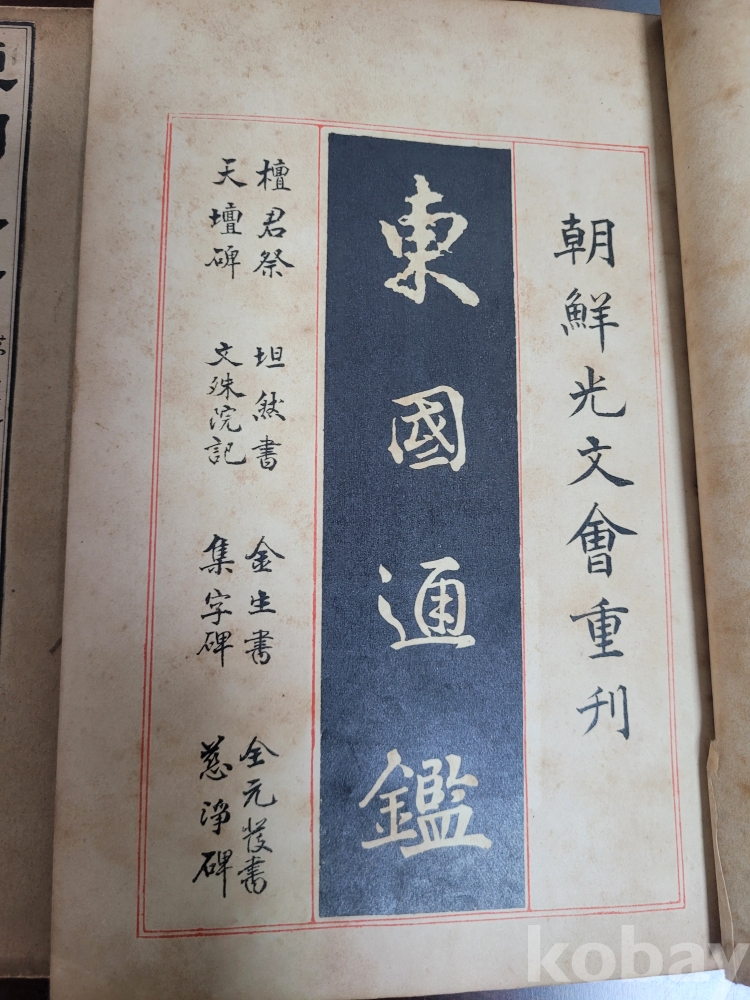 朝鮮光文會重刊
東國通鑑
檀君祭
天壇碑
坦然書
文殊院記
金生書
集字碑
全元發書
慈淨碑
kobay